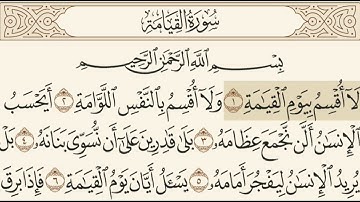 سُورَةُ القِيَامَةِ
بِسْمِ اللَّهِ الرَّحْمَٰنِ الرَّحِيمِ
لَا أُقْسِمُ بِيَوْمِ الْقِيَٰمَةِ ١ وَلَا أُقْسِمُ بِالنَّفْسِ اللَّوَّامَةِ ٢ أَيَحْسَبُ
الْإِنسَٰنُ أَلَّن نَّجْمَعَ عِظَامَهُۥ ٣ بَلَىٰ قَٰدِرِينَ عَلَىٰ أَن نُّسَوِّيَ بَنَانَهُۥ ٤ بَلْ
يُرِيدُ الْإِنسَٰنُ لِيَفْجُرَ أَمَامَهُۥ ٥ يَسْـَٔلُ أَيَّانَ يَوْمُ الْقِيَٰمَةِ ٦ فَإِذَا بَرِقَ